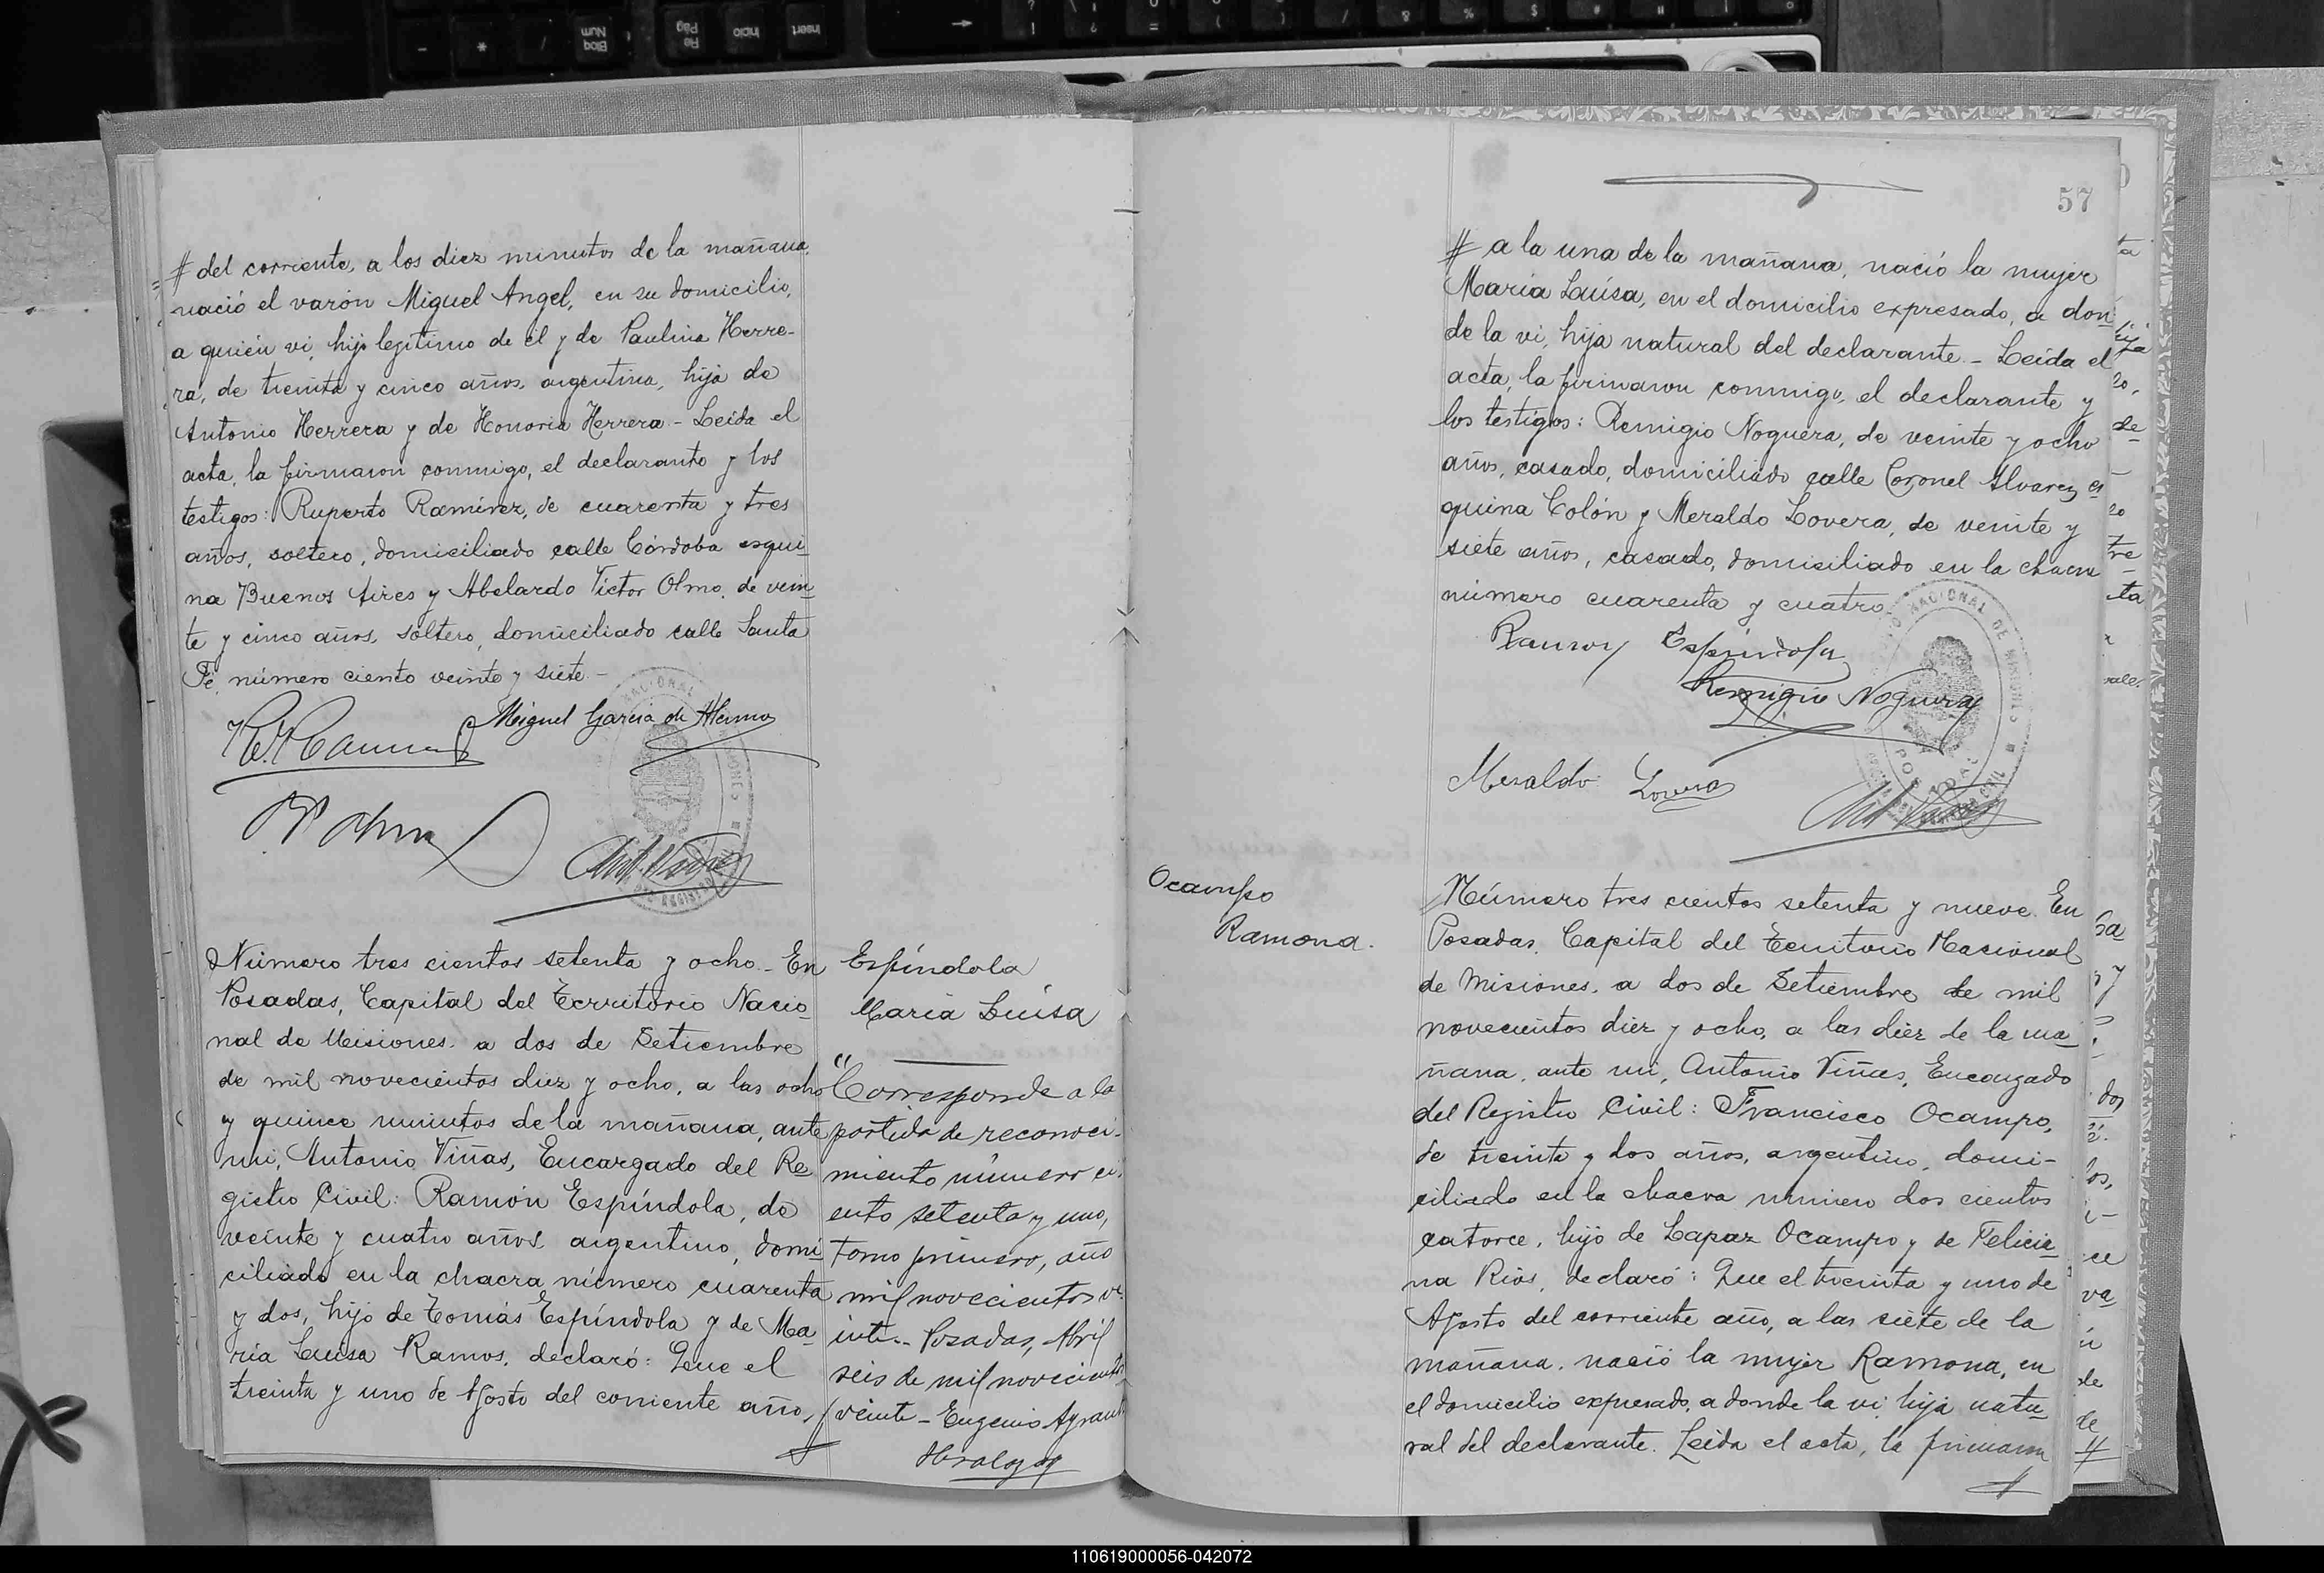 # del corriente, a los diez minutos de la mañana,
nació el varón Miguel Angel, en su domicilio,
a quién vi, hijo legítimo de él y de Paulina Herre-
ra, de treinta y cinco años, argentina, hija de
Antonio Herrera y de Honoria Herrera - Leída el
acta, la firmaron conmigo, el declarante y los
testigos: Ruperto Ramírez, de cuarenta y tres
años, soltero, domiciliado calle Córdoba esqui-
na Buenos Aires y Abelardo Víctor Olmo, de vein-
te y cinco años, soltero, domiciliado calle Santa
Fé, número ciento veinte y siete. -
Miguel Garcia de
Número tres cientos setenta y ocho. - En
Posadas, Capital del Territorio Nacio-
nal de Misiones, a dos de Setiembre
de mil novecientos diez y ocho, a las ocho
y quince minutos de la mañana, ante
mi, Antonio Viñas, Encargado del Re-
gistro Civil: Ramón Espíndola, de
veinte y cuatro años, argentino, domi-
ciliado en la chacra número cuarenta
y dos, hijo de Tomás Espíndola y de Ma-
ría Luisa Ramos, declaró: Que el
treinta y uno de Agosto del corriente año,
#
Espíndola
María Luísa
"Corresponde a la
partida de reconoci-
miento número ci-
ento setenta y uno,
tomo primero, año
mil novecientos ve-
inte. - Posadas, Abril
seis de mil novecientos
veinte - Eugenio
57
# a la una de la mañana, nació la mujer
María Luísa, en el domicilio expresado, a don-
de la vi, hija natural del declarante. - Leída el
acta, la firmaron conmigo, el declarante y
los testigos: Remigio Noguera, de veinte y ocho
años, casado, domiciliado calle Coronel Alvarez es
quina Colón y Meraldo Lovera, de veinte y
siete años, casado, domiciliado en la chacra
número cuarenta y cuatro.
Ramon Espíndola
Remigio Noguera
Meraldo Lovera
Ocampo
Ramona.
Número tres cientos setenta y nueve. En
Posadas, Capital del Territorio Nacional
de Misiones, a dos de Setiembre de mil
novecientos diez y ocho, a las diez de la ma-
ñana, ante mi, Antonio Viñas, Encargado
del Registro Civil: Francisco Ocampo,
de treinta y dos años, argentino, domi-
ciliado en la chacra número dos cientos
catorce, hijo de Lapaz Ocampo y de Felicia-
na Rios, declaró: Que el treinta y uno de
Agosto del corriente año, a las siete de la
mañana, nació la mujer Ramona, en
el domicilio expresado, a donde la vi, hija natu-
ral del declarante. Leída el acta, la firmaron
#
110619000056-042072